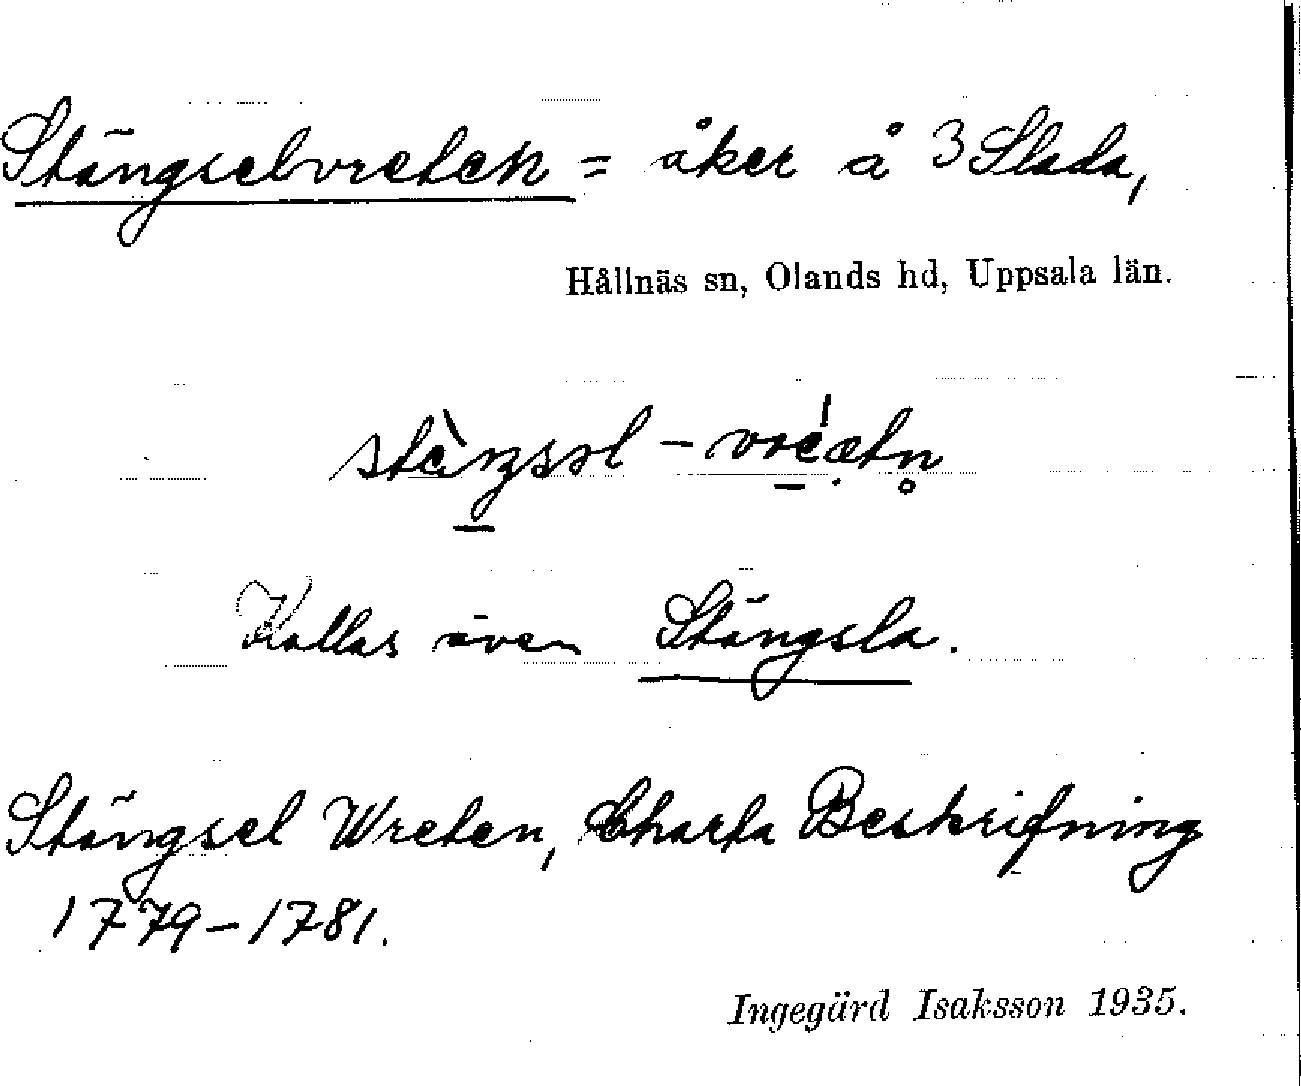 Stängselvreten = åker å 3 Slada,
Hållnäs sn, Olands hd, Uppsala län.
Kallas även Stängsla.
Stängsel Wreten, Charta Beskrifning
1779–1781.
Ingegärd Isaksson 1935.